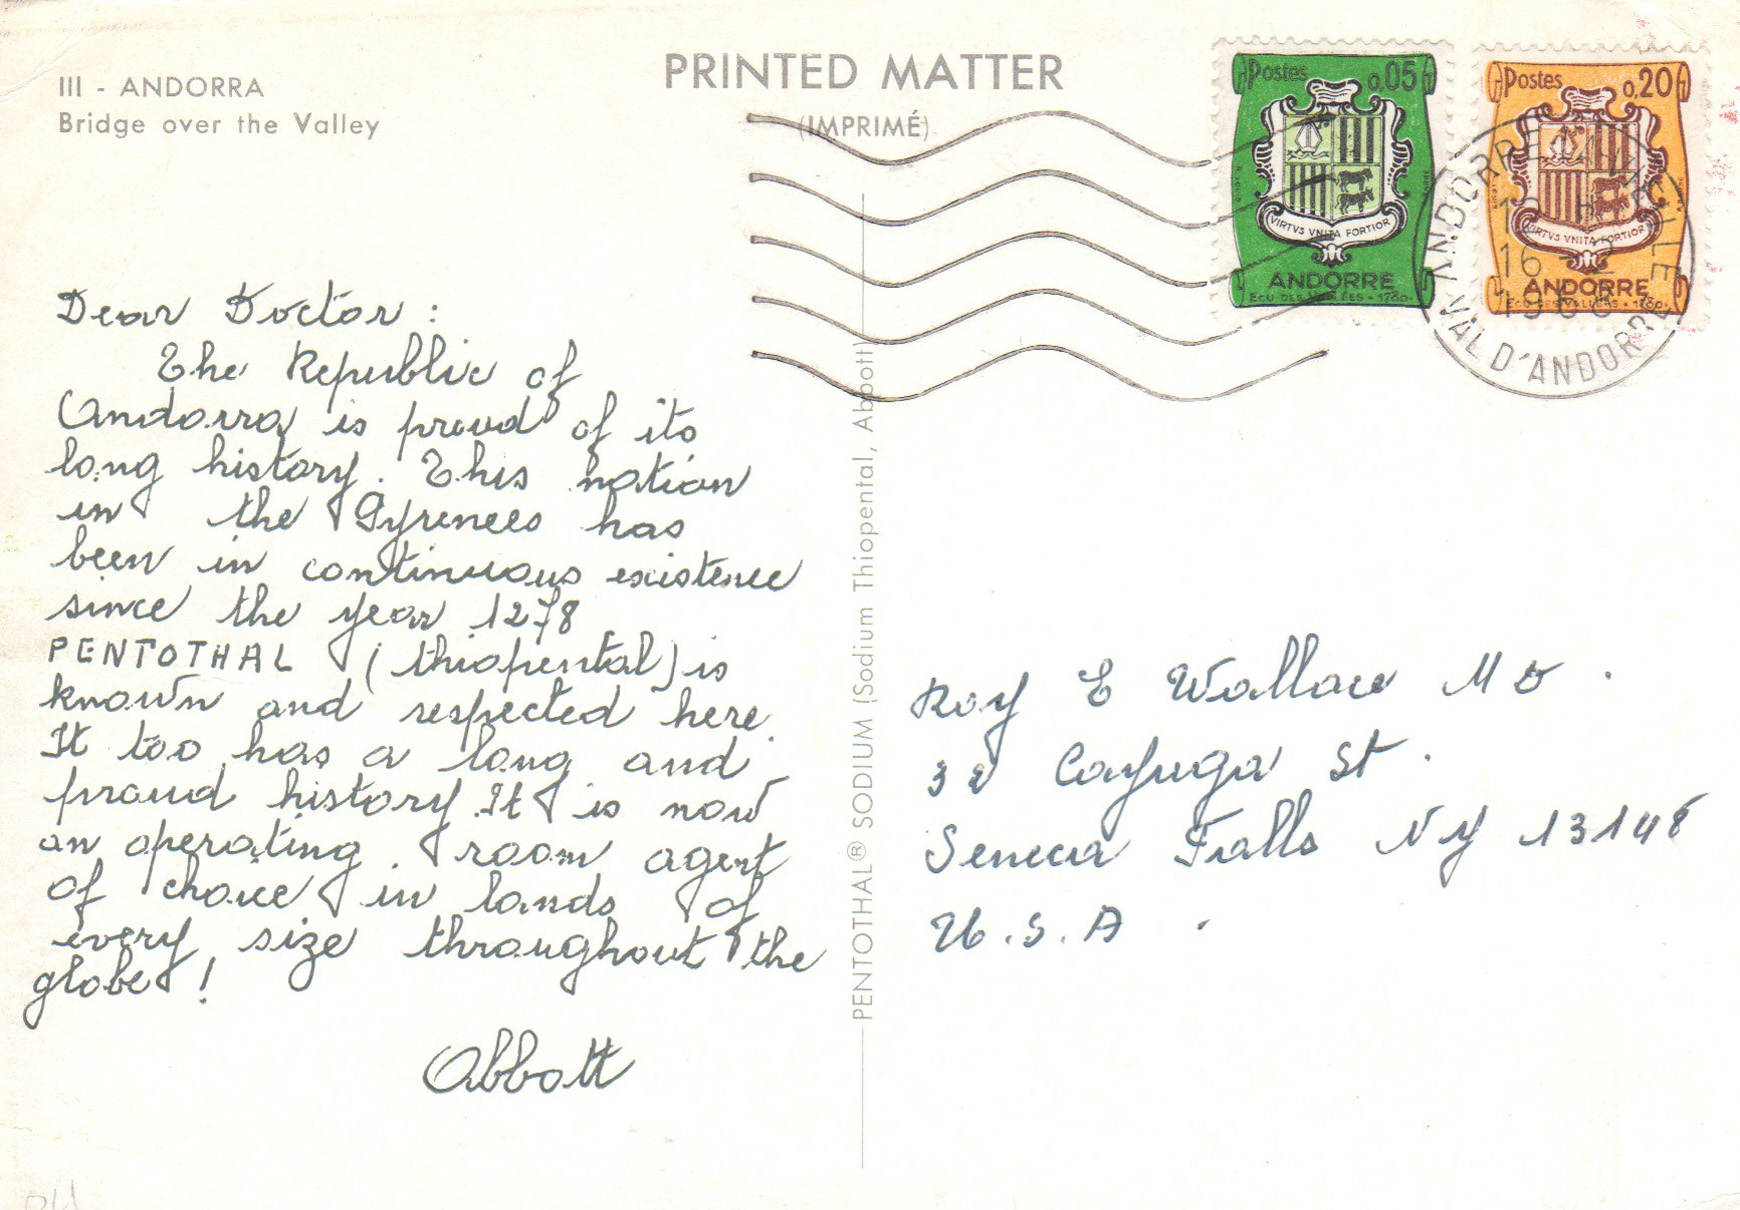 III - ANDORRA
Bridge over the Valley
PRINTED MATTER
(IMPRIMÉ)
Postes 0,05
VIRTVS VNITA FORTIOR
ANDORRE
ECU DES VALLÉES • 1760•
Postes 0,20
VIRTVS VNITA FORTIOR
ANDORRE
ECU DES VALLÉES • 1760•
ANDORRE-LA-VIEILLE
16
VAL D'ANDORRE
Dear Doctor :
The Republic of
Andorra is proud of its
long history. This nation
in the Pyrenees has
been in continuous existence
since the year 1278
PENTOTHAL (thiopental) is
known and respected here.
It too has a long and
proud history. It is now
an operating room agent
of choice in lands of
every size throughout the
globe !
Abbott
PENTOTHAL® SODIUM (Sodium Thiopental, Abbott)
Roy E Wallace M D .
32 Cayuga St .
Seneca Falls NY 13148
U.S.A .